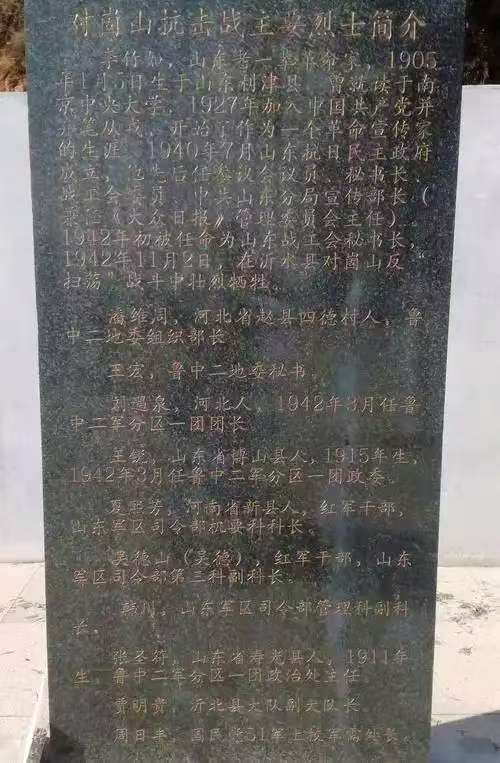 对崮山抗击战主要烈士简介
李竹如，山东省一牺牲命家，1905
年1月5日生于山东利津县，曾就读于南
京中央大学，1927年加入中国共产党并
弃笔从戎，开始了作为一个革命宣传家
的生涯。1940年7月山东抗日民主政府
成立，他先后任参议会议员、秘书长、
战工会委员，中共山东分局宣传部长（
兼任《大众日报》管理委员会主任），
1942年初被任命为山东战工会秘书长，
1942年11月2日，在沂水县对崮山反“
扫荡”战斗中壮烈牺牲。
潘维周，河北省赵县四德村人，鲁
中二地委组织部长。
王宏，鲁中二地委秘书。
刘遇泉，河北人，1942年3月任鲁
中二军分区一团团长。
王锐，山东省博山县人，1915年生，
1942年3月任鲁中二军分区一团政委。
夏熙芳，河南省新县人，红军干部，
山东军区司令部机要科科长。
吴德山（吴德），红军干部，山东
军区司令部第三科副科长。
韩川，山东军区司令部管理科副科
长。
张圣符，山东省寿光县人，1911年
生，鲁中二军分区一团政治处主任。
贾明贵，沂北县大队副大队长。
周日丰，国民党51军上校军需处长。